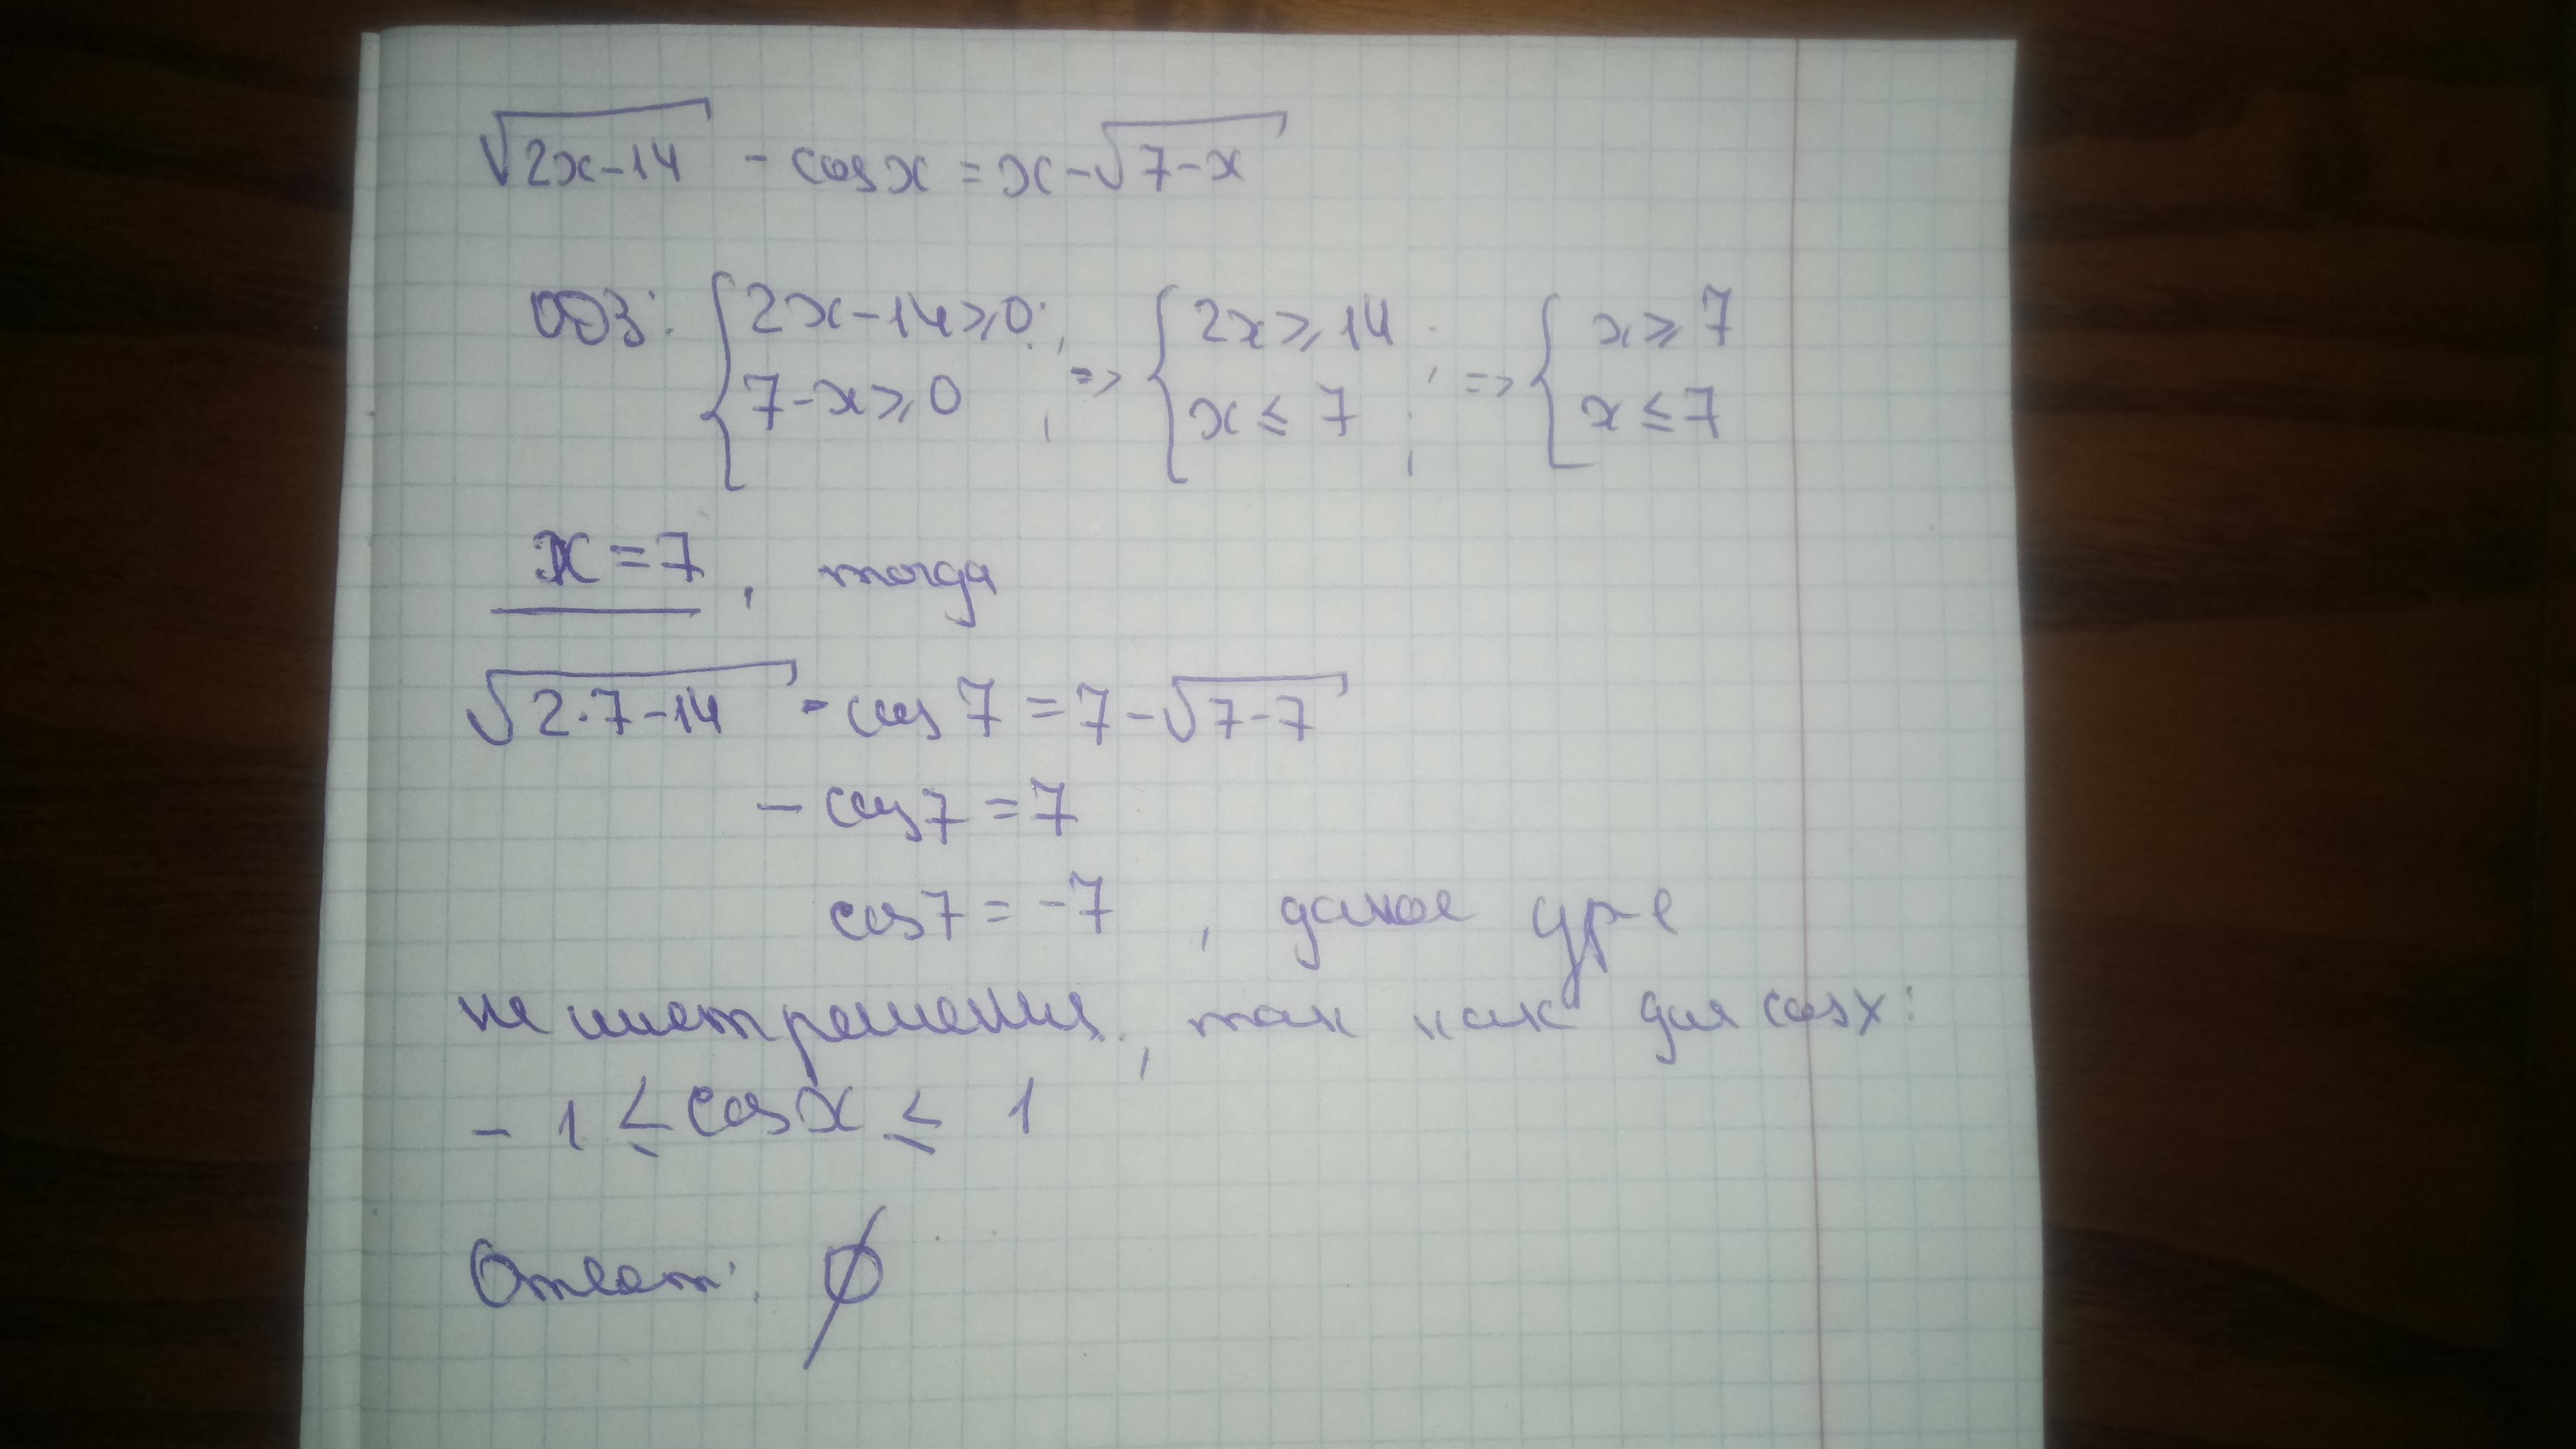 √(2x-14) - cos x = x - √(7-x)
ОДЗ: { 2x-14≥0; 7-x≥0; => { 2x≥14; x≤7; => { x≥7 x≤7
x=7, тогда
√(2·7-14) - cos 7 = 7 - √(7-7)
- cos 7 = 7
cos 7 = -7, даное ур-е
не имеет решения, так как для cos x:
-1 ≤ cos x ≤ 1
Ответ: ∅